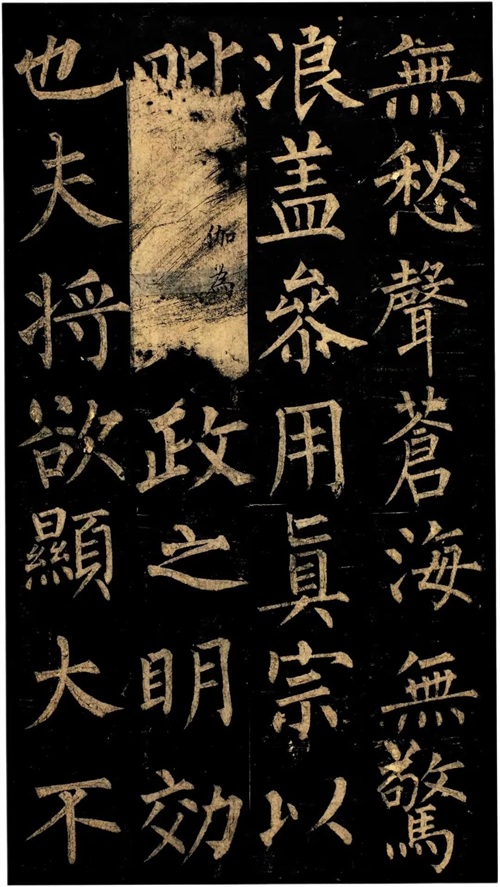 無愁聲蒼海無驚
浪盖叅用眞宗以
伽為
政之明効
也夫将欲顯大不